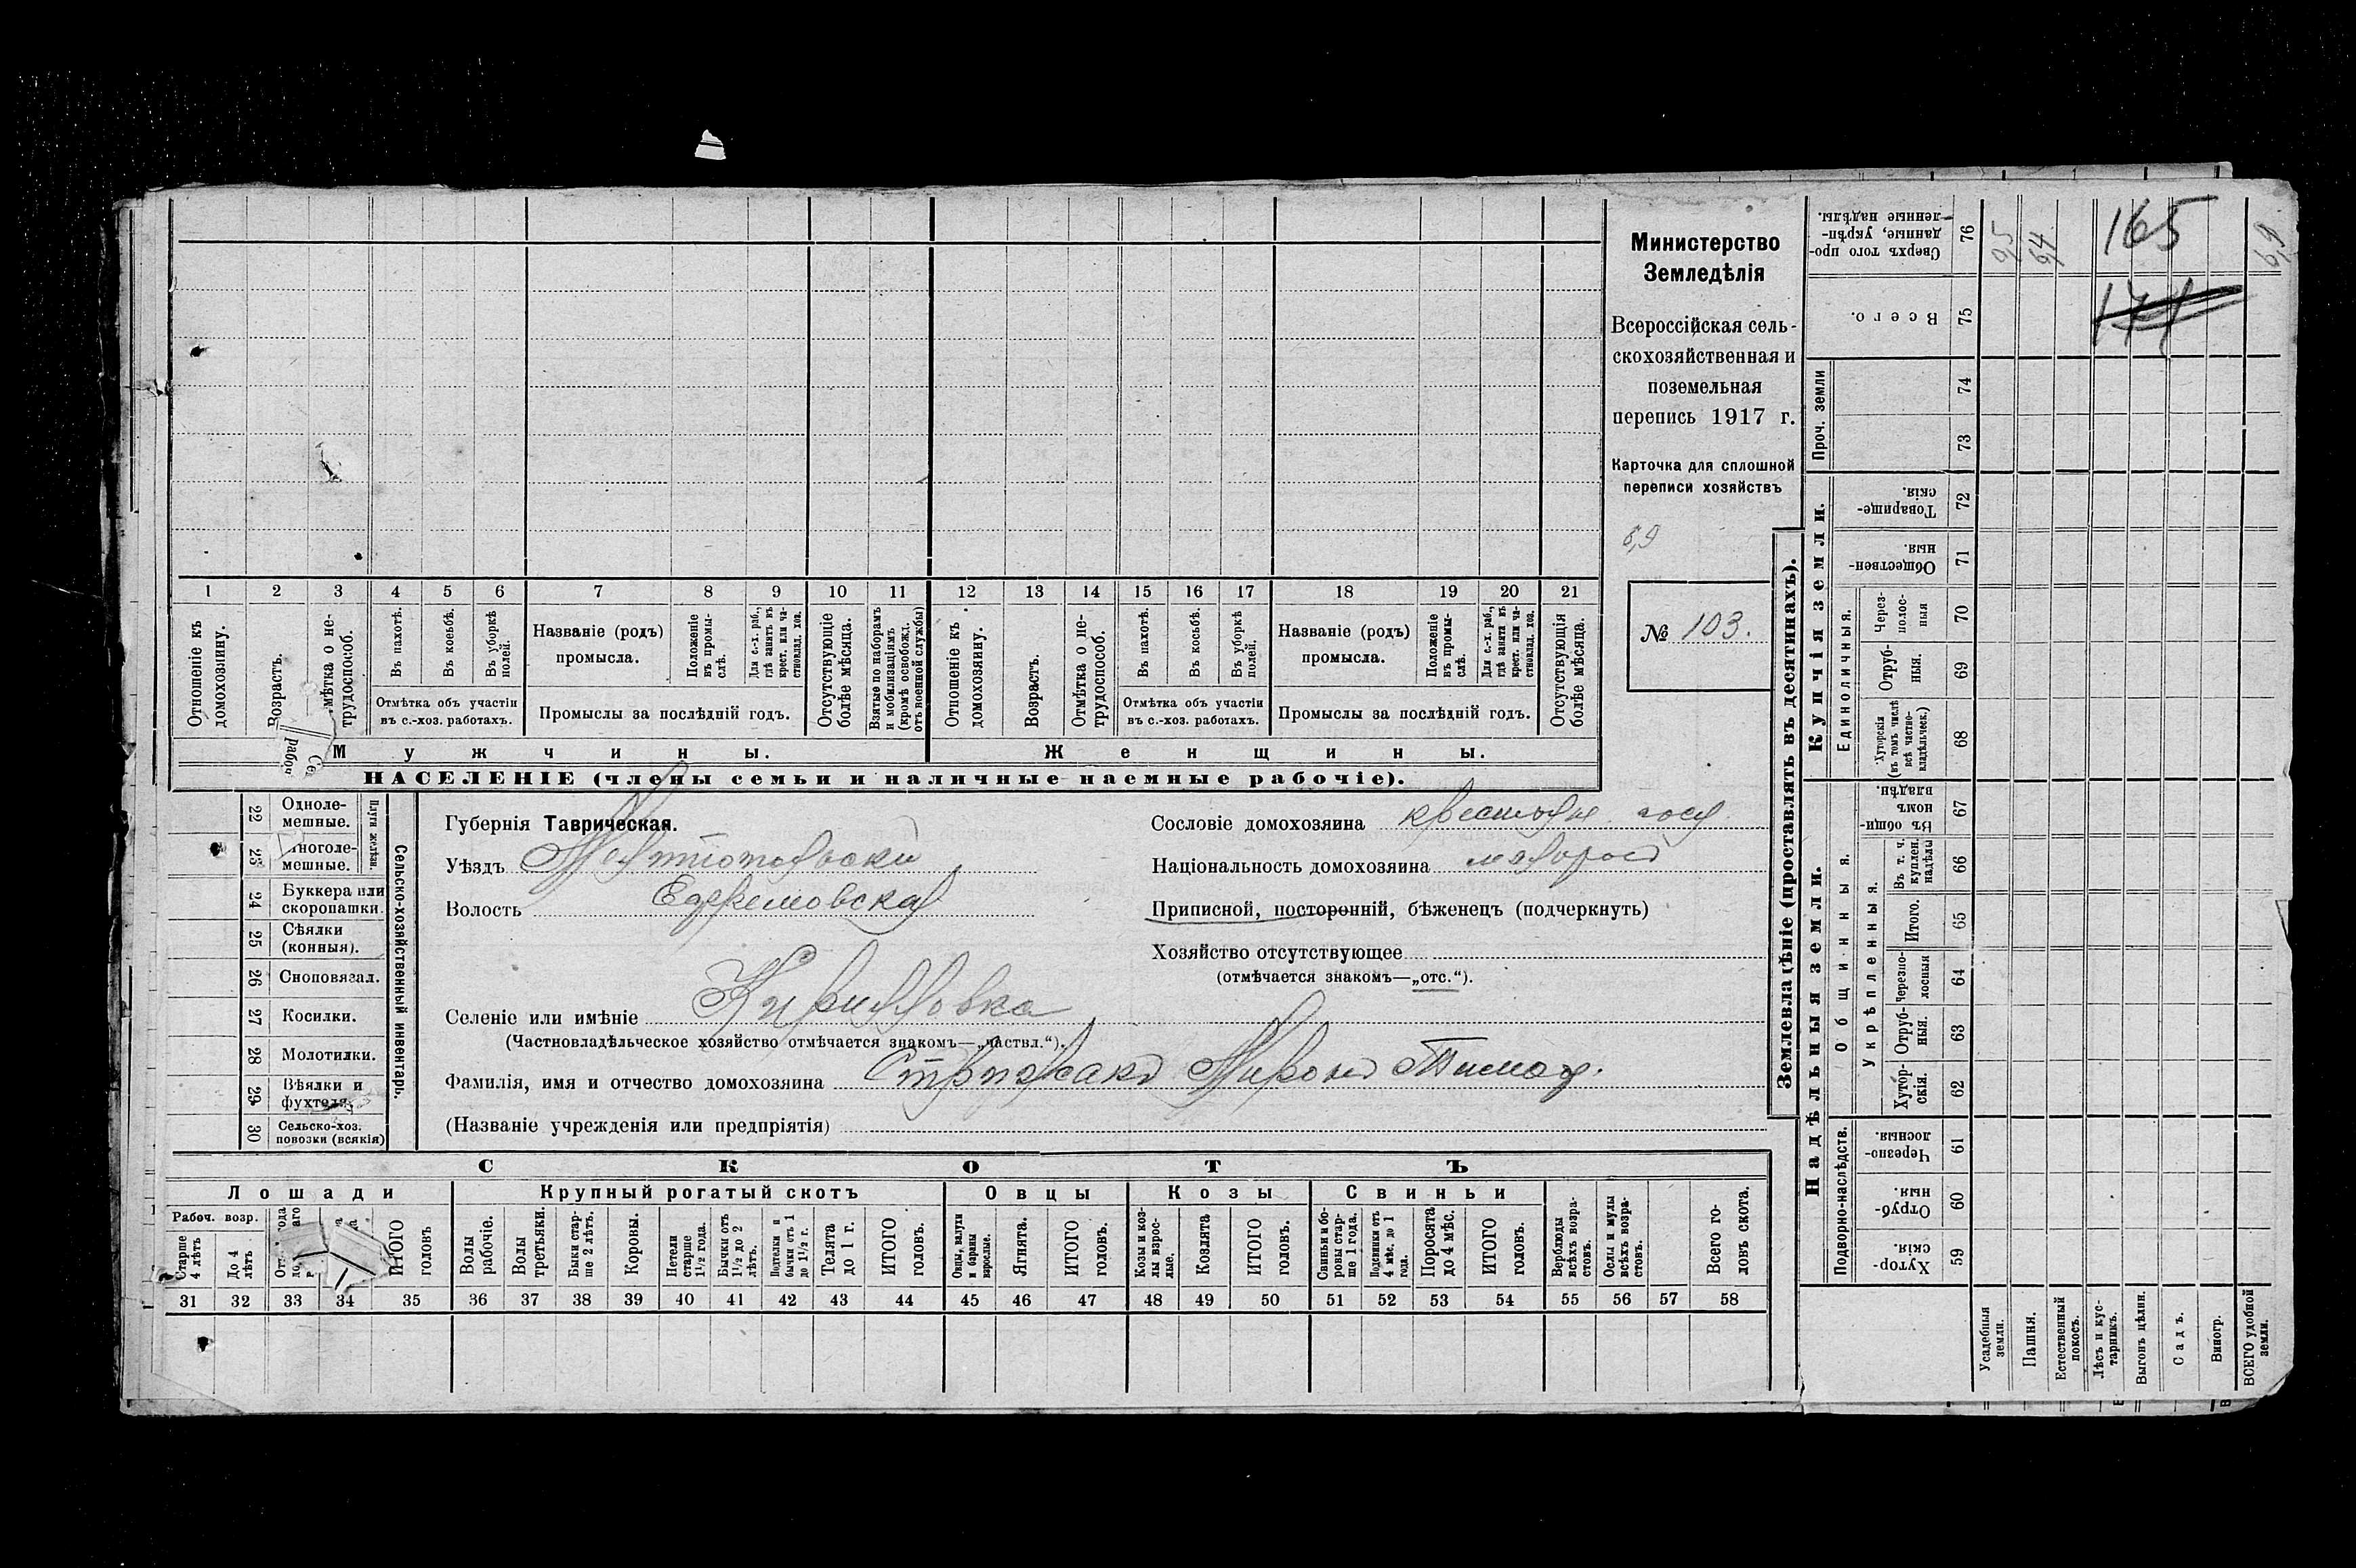 Министерство
Земледѣлія
Всероссійская сель-
скохозяйственная и
поземельная
перепись 1917 г.
Карточка для сплошной
переписи хозяйствъ
6,9
№ 103.
1 2 3 4 5 6 7 8 9 10 11 12 13 14 15 16 17 18 19 20 21
Отношеніе къ домохозяину.
Возрастъ.
мѣтка о не-трудоспособ.
Въ пахотѣ.
Въ косьбѣ.
Въ уборкѣ полей.
Отмѣтка объ участіи
въ с.-хоз. работахъ.
Названіе (родъ)
промысла.
Положеніе въ промы-слѣ.
Для с.-х. раб., гдѣ занятъ въ крест. или ча-стновлад. хоз.
Промыслы за послѣдній годъ.
Отсутствующіе болѣе мѣсяца.
Взятые по наборамъ и мобилизаціямъ (кромѣ освобожд. отъ военной службы)
Отношеніе къ домохозяину.
Возрастъ.
Отмѣтка о не-трудоспособ.
Въ пахотѣ.
Въ косьбѣ.
Въ уборкѣ полей.
Отмѣтка объ участіи
въ с.-хоз. работахъ.
Названіе (родъ)
промысла.
Положеніе въ промы-слѣ.
Для с.-х. раб., гдѣ занята въ крест. или ча-стновлад. хоз.
Промыслы за послѣдній годъ.
Отсутствующія болѣе мѣсяца.
Мужчины.
Женщины.
НАСЕЛЕНІЕ (члены семьи и наличные наемные рабочіе).
22 Одноле-мешные.
23 ноголе-мешные.
Плуги желѣзн.
24 Буккера или скоропашки.
25 Сѣялки (конныя).
26 Сноповязал.
27 Косилки.
28 Молотилки.
29 Вѣялки и фухтеля.
30 Сельско-хоз. повозки (всякія)
Сельско-хозяйственный инвентарь.
Губернія Таврическая.
Уѣздъ Мелитопольскій
Волость Ефремовская
Селеніе или имѣніе Кирилловка
(Частновладѣльческое хозяйство отмѣчается знакомъ—„частвл.“).
Фамилія, имя и отчество домохозяина Миронъ Тимоф.
(Названіе учрежденія или предпріятія)
Сословіе домохозяина
Національность домохозяина малоросъ
Приписной, посторонній, бѣженецъ (подчеркнуть)
Хозяйство отсутствующее
(отмѣчается знакомъ—„отс.“).
СКОТЪ
Лошади
Крупный рогатый скотъ
Овцы
Козы
Свиньи
Рабоч. возр.
Старше 4 лѣтъ
До 4 лѣтъ
ИТОГО головъ
Волы рабочіе.
Волы третьяки.
Быки стар-ше 2 лѣтъ.
Коровы.
Нетели старше 1½ года.
Бычки отъ 1½ до 2 лѣтъ.
Подтелки и бычки отъ 1 до 1½ г.
Телята до 1 г.
ИТОГО головъ.
Овцы, валухи и бараны взрослые.
Ягнята.
ИТОГО головъ.
Козы и коз-лы взрос-лые.
Козлята
ИТОГО головъ.
Свиньи и бо-ровы стар-ше 1 года.
Подсвинки отъ 4 мѣс. до 1 года.
Поросята до 4 мѣс.
ИТОГО головъ.
Верблюды всѣхъ возра-стовъ.
Ослы и мулы всѣхъ возра-стовъ.
Всего го-ловъ скота.
31 32 33 34 35 36 37 38 39 40 41 42 43 44 45 46 47 48 49 50 51 52 53 54 55 56 57 58
Землевладѣніе (проставлять въ десятинахъ).
Надѣльныя земли.
Купчія земли.
Проч. земли
Подворно-наслѣдств.
Общинныя.
Укрѣпленныя.
Единоличныя.
Сверхъ того про-данные, укрѣп-ленные надѣлы. 76
Всего. 75
74
73
Товарище-скія. 72
Обществен-ныя. 71
Через-полос-ныя 70
Отруб-ныя. 69
Хуторскія (въ томъ числѣ всѣ частно-владѣльческ.) 68
Въ общин-номъ владѣн. 67
Въ т. ч. куплен. надѣлы 66
Итого. 65
Черезпо-лосныя 64
Отруб-ныя. 63
Хутор-скія. 62
Черезпо-лосныя. 61
Отруб-ныя. 60
Хутор-скія. 59
Усадебныя земли.
Пашня.
Естественный покосъ.
Лѣсъ и кус-тарникъ.
Выгонъ цѣлин.
Садъ.
Виногр.
ВСЕГО удобной земли.
0,5
6,4
165
171
6,9